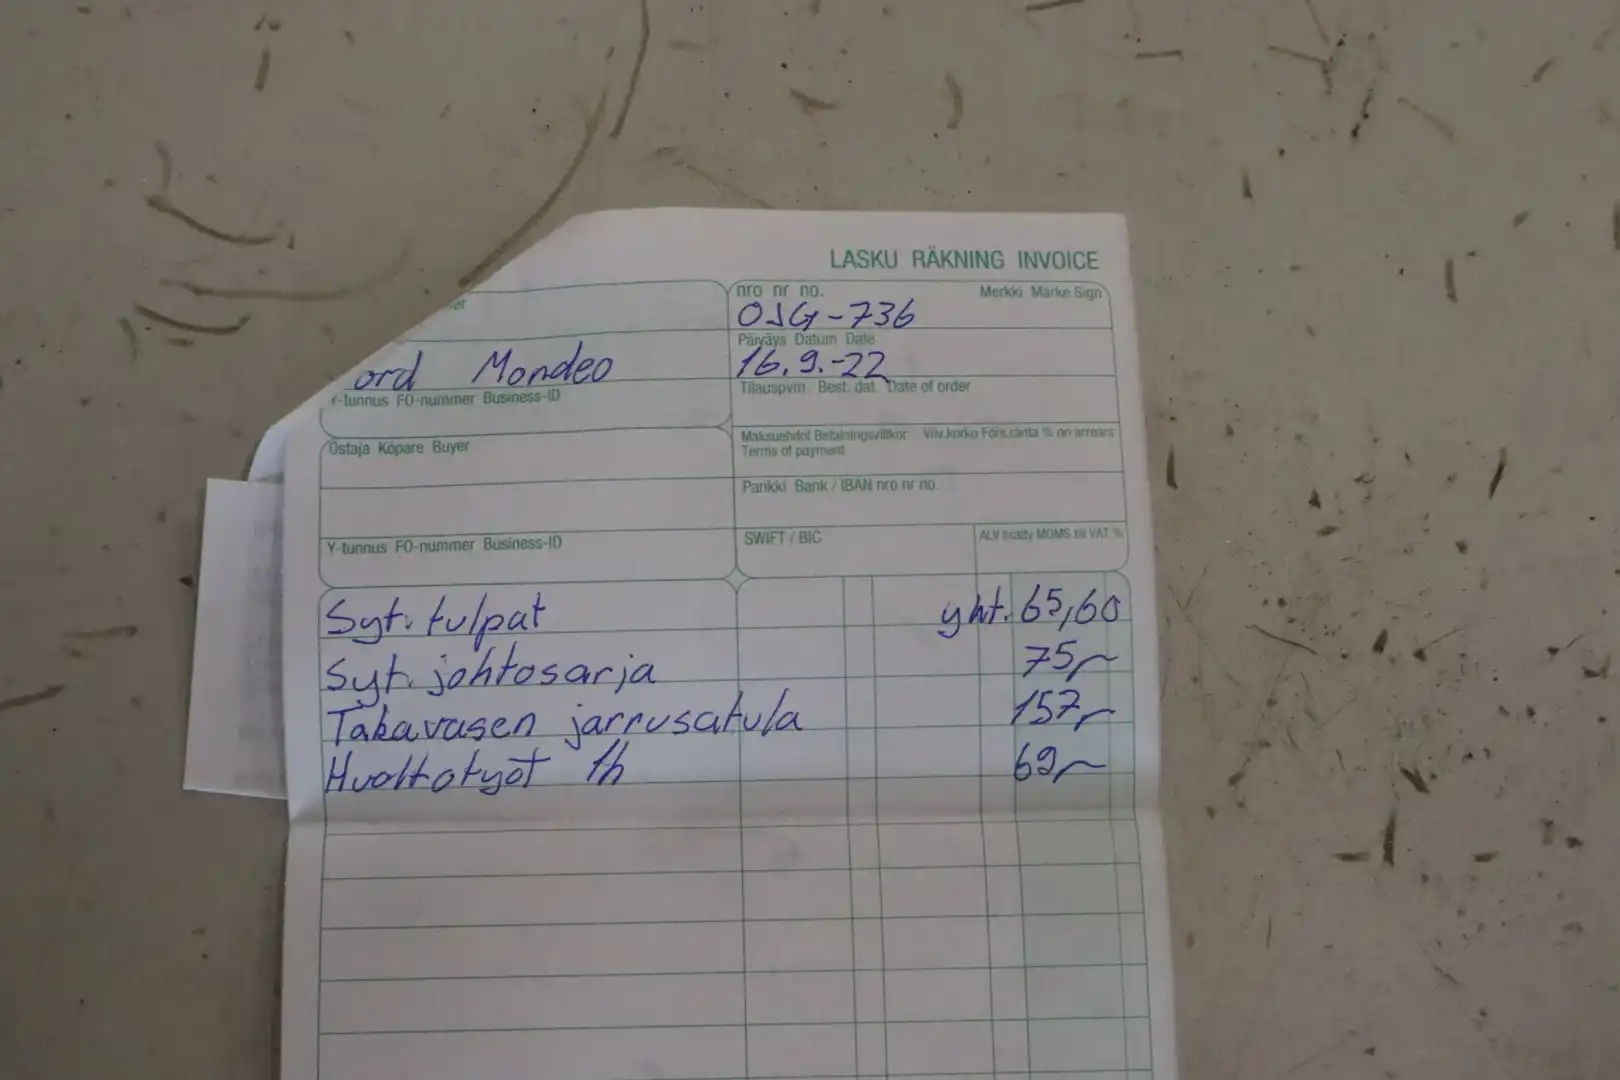 LASKU RÄKNING INVOICE
er
nro nr no. Merkki Märke Sign
OJG-736
Päiväys Datum Date
ord Mondeo
16.9.-22
Y-tunnus FO-nummer Business-ID
Tilauspvm. Best. dat. Date of order
Ostaja Köpare Buyer
Maksuehdot Betalningsvillkor Viiv.korko Förs.ränta % on arrears
Terms of payment
Pankki Bank / IBAN nro nr no.
Y-tunnus FO-nummer Business-ID
SWIFT / BIC
ALV lisätty MOMS till VAT %
Syt. tulpat yht. 65,60
Syt. johtosarja 75,-
Takavasen jarrusatula 157,-
Huoltotyöt 1h 69,-